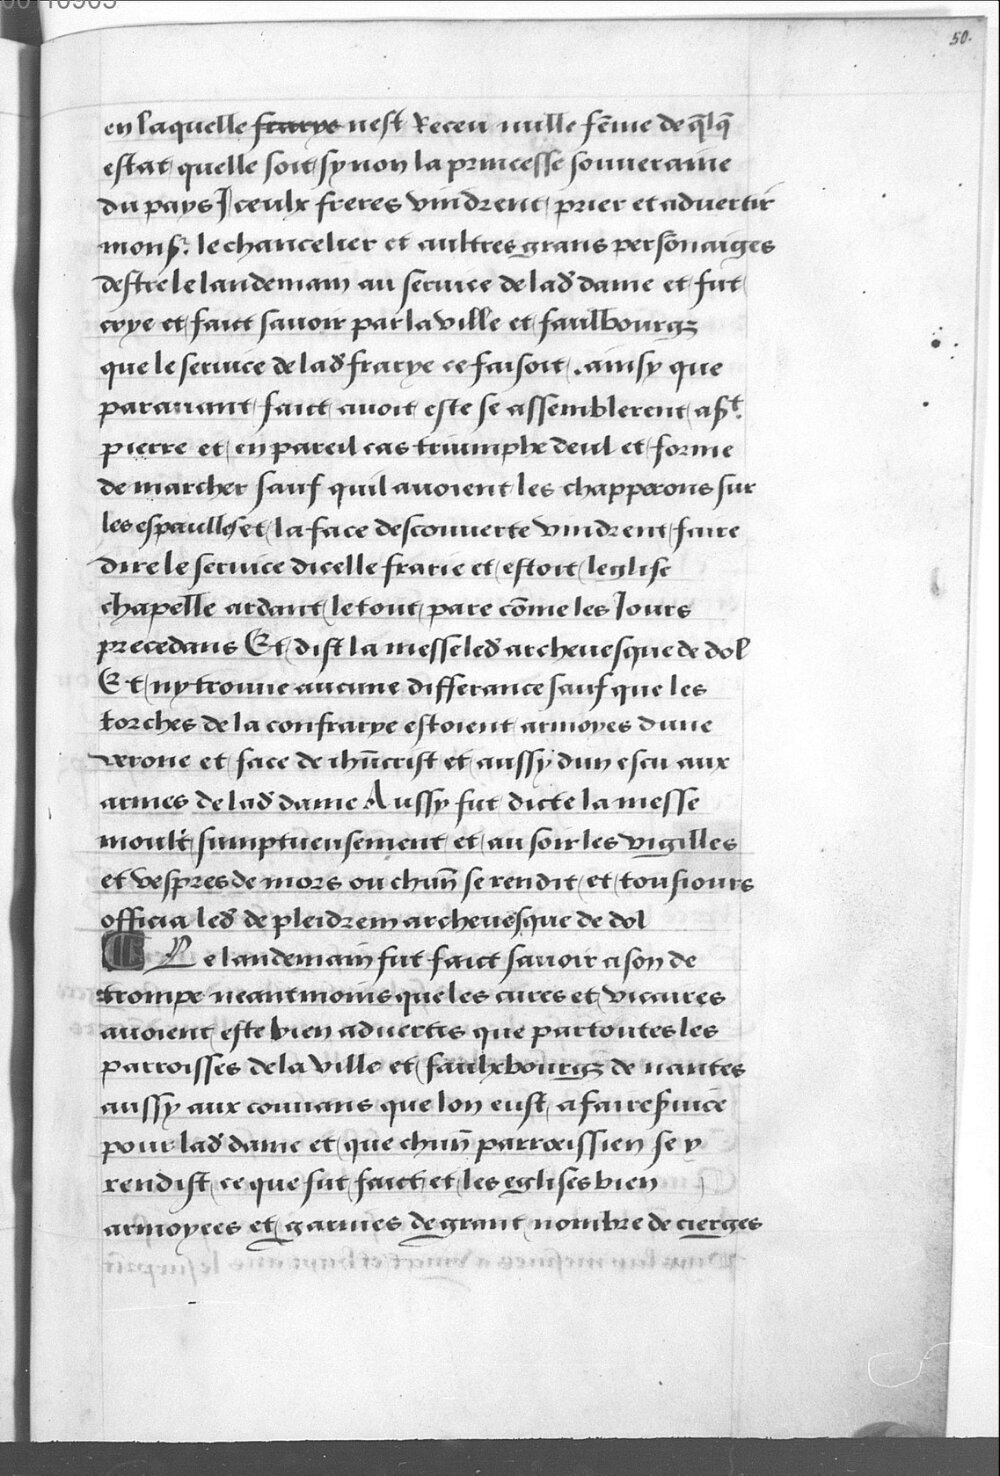 50.
en laquelle frarye nest Receu nulle fēme de q̄lq̄
estat quelle soit synon la princesse souueraine
du pays Iceulx freres vindrent prier et aduertir
monsr. le chancelier et aultres grans personaiges
destre le landemain au seruice de lad dame et fut
crye et faict sauoir par la ville et faulbourgz
que le seruice de lad frarye ce faisoit . ainsy que
parauant faict auoit este se assemblerent a st.
pierre et en pareil cas triumphe deul et forme
de marcher sauf quil auoient les chapperons sur
les espaulles et la face descouuerte vindrent faire
dire le seruice dicelle frarie et estoit leglise
chapelle ardant le tout pare cōme les Iours
precedans Et dist la messe led archeuesque de dol
Et ny trouue aucune differance sauf que les
torches de la confrarye estoient armoyes dune
verone et face de ihūcrist et aussy dun escu aux
armes de lad dame Aussy fut dicte la messe
moult sumptueusement et au soir les vigilles
et vespres de mors ou chun̄ se rendit et tousiours
officia led de pleidren archeuesque de dol
Le landemain fut faict sauoir a son de
trompe neantmoins que les cures et vicaires
auoient este bien aduertis que par toutes les
parroisses de la ville et faulxbourgz de nantes
aussy aux couuans que lon eust a faire s̄uice
pour lad dame et que chun̄ parroissien se y
rendist ce que fut faict et les eglises bien
armoyees et garnies de grant nombre de cierges